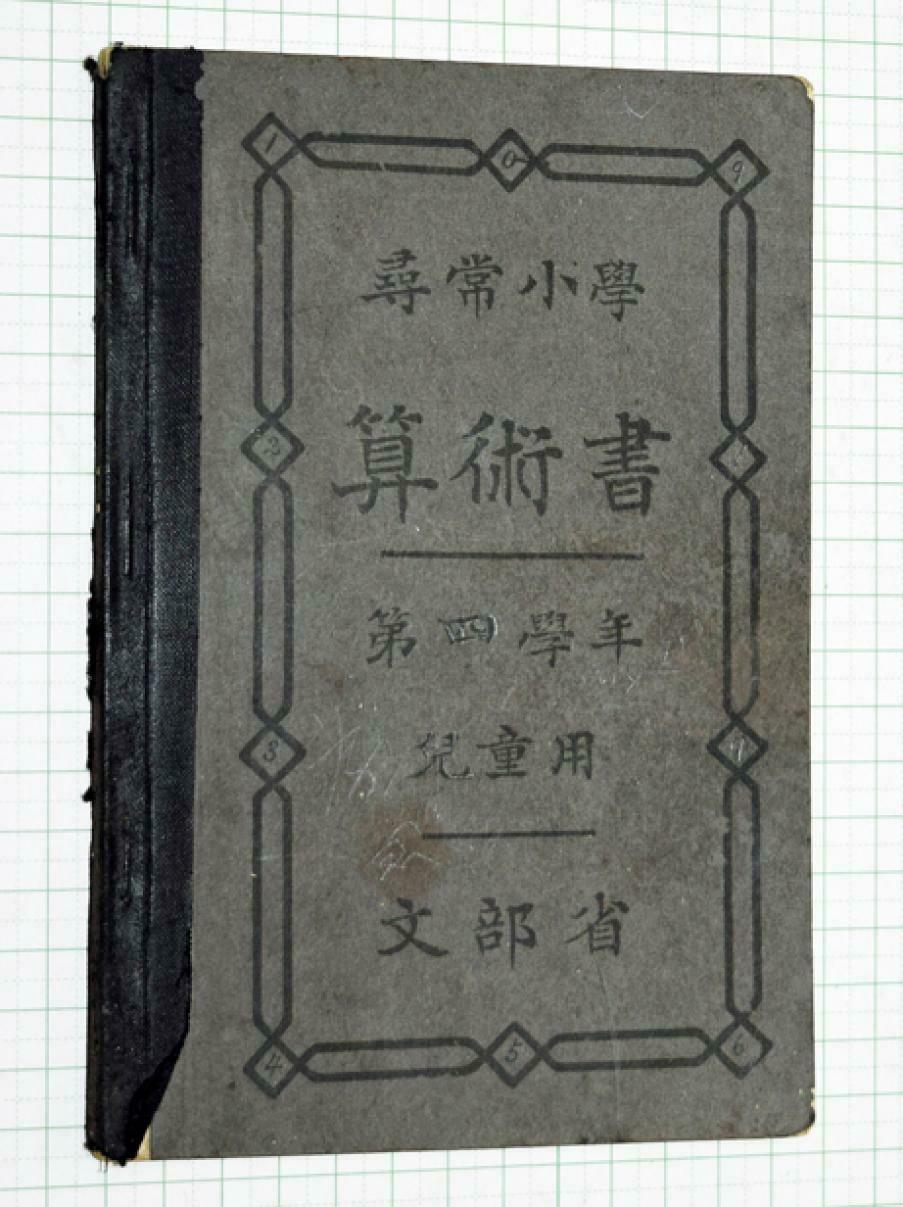 1 0 9
尋常小學
算術書
2
第四學年
3
兒童用
文部省
4 5 6